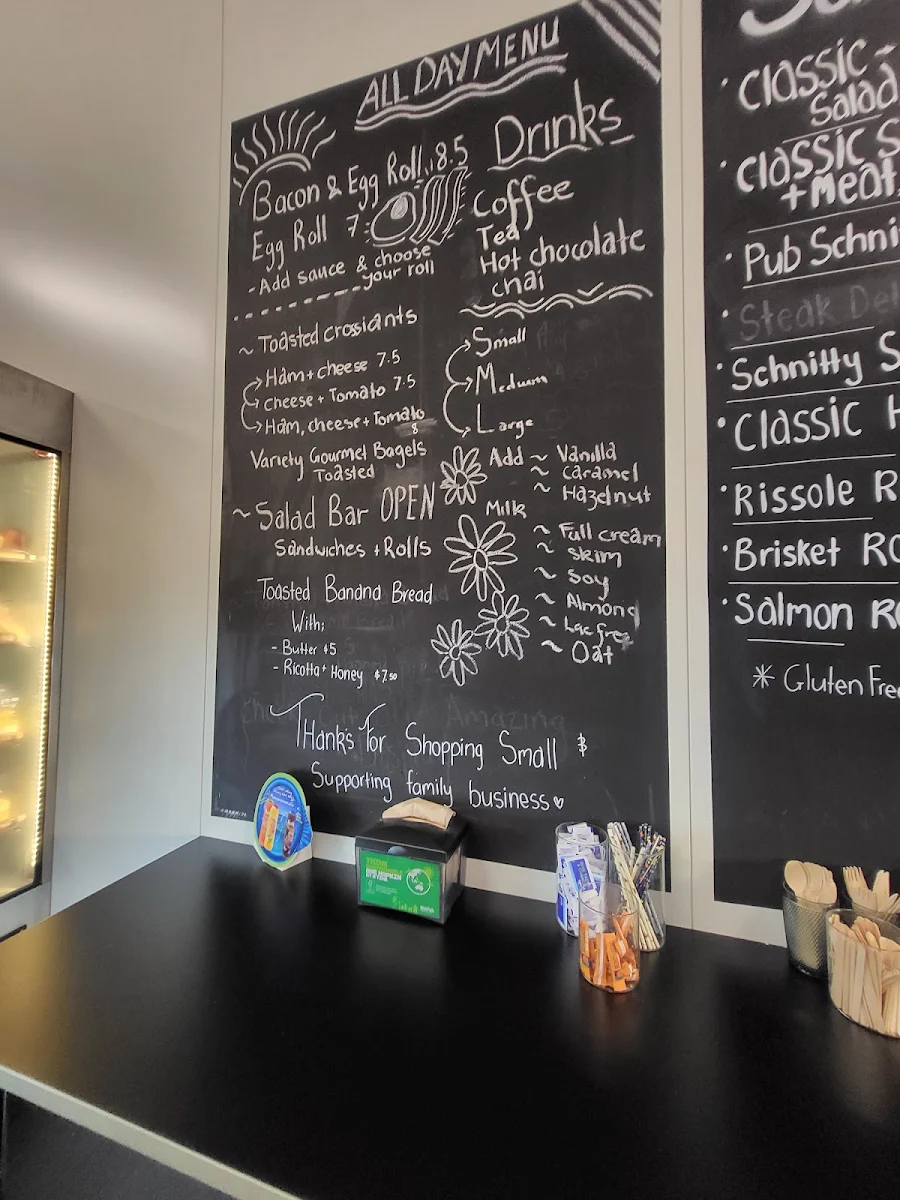 ALL DAY MENU
Bacon & Egg Roll 8.5
Egg Roll 7
- Add sauce & choose
your roll
~ Toasted crossiants
Ham + cheese 7.5
cheese + Tomato 7.5
Ham, cheese + Tomato
8
Variety Gourmet Bagels
Toasted
~ Salad Bar OPEN
Sandwiches + Rolls
Toasted Banana Bread
With;
- Butter $5
- Ricotta + Honey $7.50
Drinks
Coffee
Tea
Hot chocolate
chai
Small
Medium
Large
Add ~ Vanilla
~ caramel
~ Hazelnut
Milk
~ Full cream
~ skim
~ Soy
~ Almond
~ Lac free
~ Oat
THanks For Shopping Small $
Supporting family business
· Classic -
Salad
· Classic S
+ Meat
· Pub Schni
· Steak Del
· Schnitty S
· Classic H
· Rissole R
· Brisket Ro
· Salmon Ro
* Gluten Free